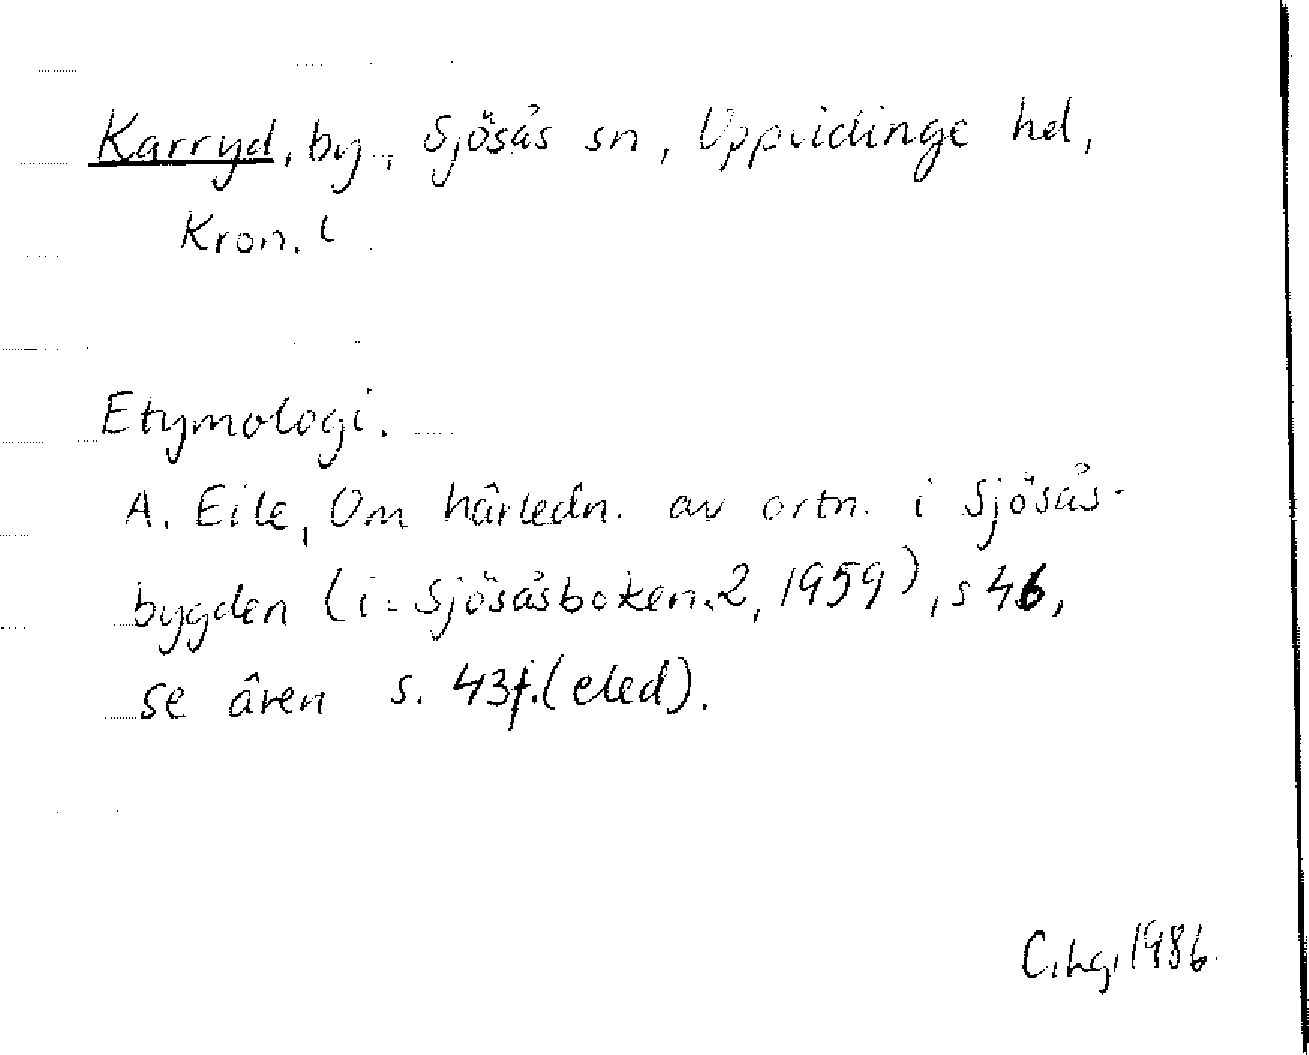 Karryd, by, Sjösås sn, Uppvidinge hd,
Kron. l
Etymologi.
A. Eile, Om härledn. av ortn. i Sjösås-
bygden (i: Sjösåsboken. 2, 1959), s 46,
se även s. 43f. (eled).
1986